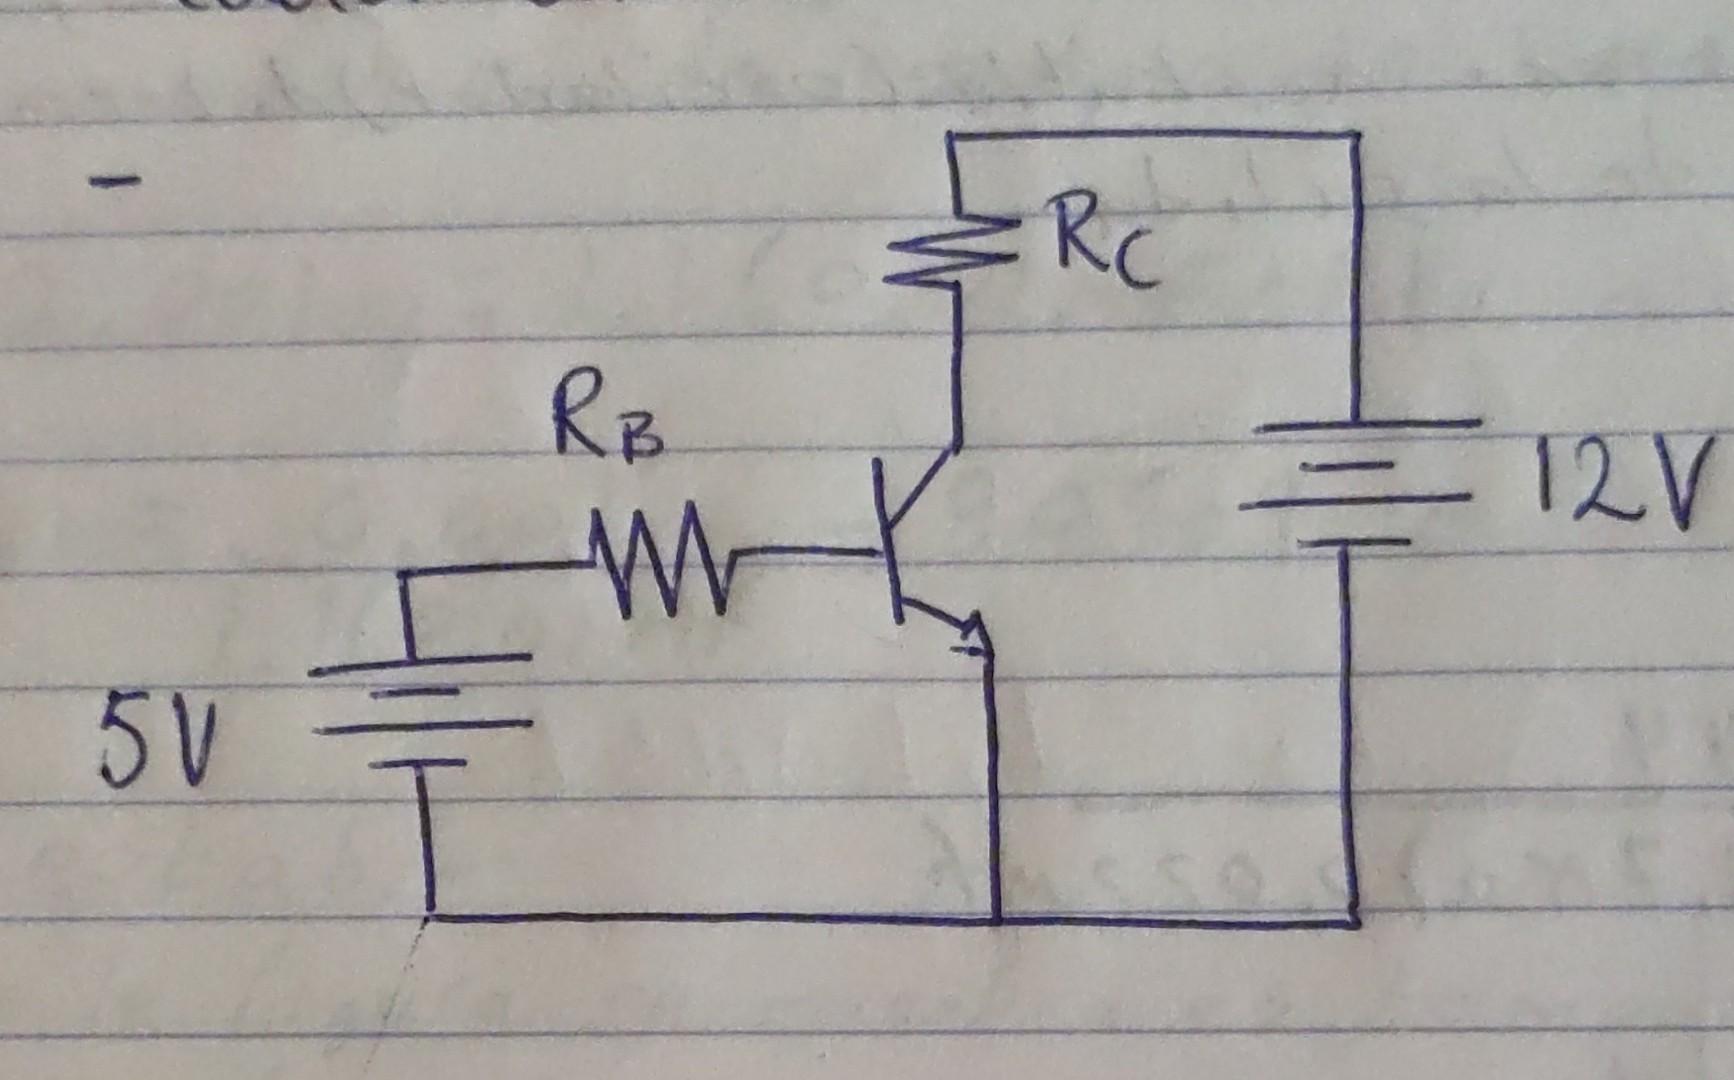 -
RC
RB
12V
5V